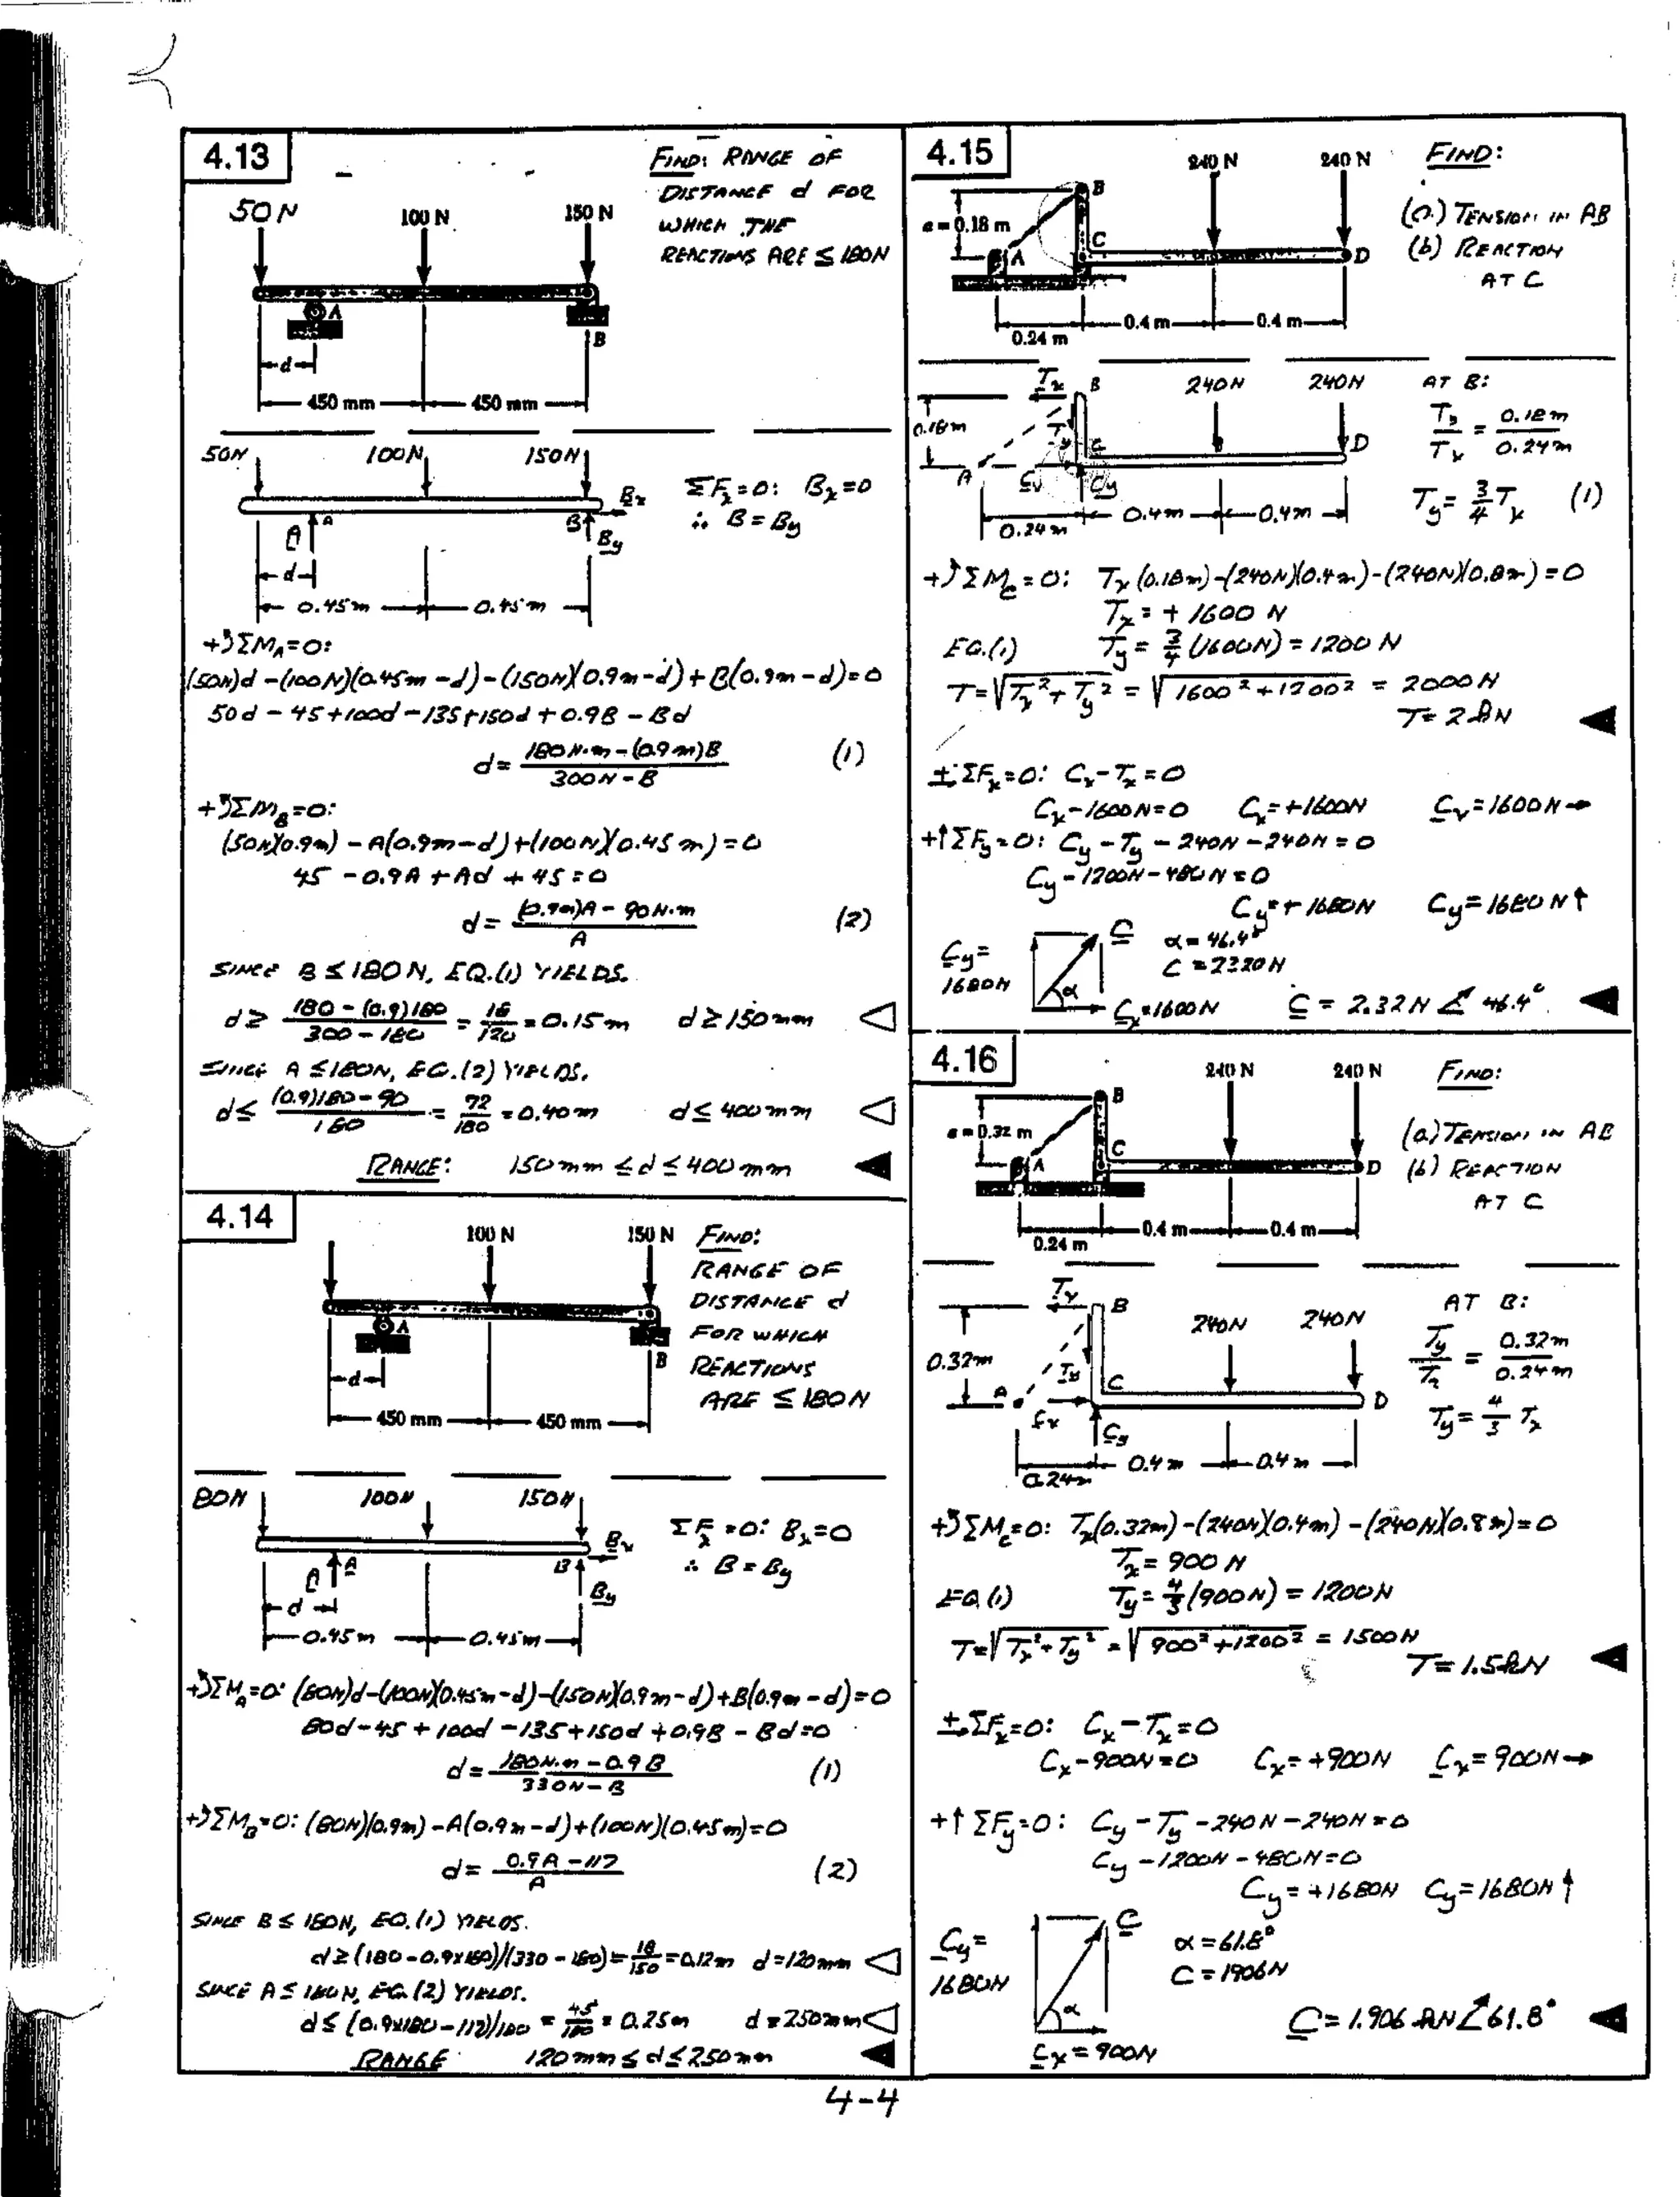 4.13
FIND: RANGE OF
DISTANCE d FOR
WHICH THE
REACTIONS ARE ≤ 180N
50 N
100 N
150 N
A
B
d
450 mm
450 mm
50N
100N
150N
Bx
A
A
B
By
d
0.45m
0.45m
ΣFx=0: Bx=0
∴ B=By
+↺ΣMA=0:
(50N)d -(100N)(0.45m -d)-(150N)(0.9m-d)+B(0.9m-d)=0
50d - 45+100d-135+150d+0.9B - Bd
d= 180N·m-(0.9m)B / 300N-B (1)
+↺ΣMB=0:
(50N)(0.9m) - A(0.9m-d)+(100N)(0.45m)=0
45 -0.9A+Ad+45=0
d= (0.9m)A - 90N·m / A (2)
SINCE B ≤ 180N, EQ.(1) YIELDS.
d≥ 180-(0.9)180 / 300-180 = 18/120 = 0.15m d≥150mm
SINCE A ≤180N, EQ.(2) YIELDS,
d≤ (0.9)180-90 / 180 = 72/180 = 0.40m d≤400mm
RANGE: 150mm ≤ d ≤ 400mm
4.14
100 N
150 N
FIND:
RANGE OF
DISTANCE d
FOR WHICH
REACTIONS
ARE ≤ 180N
A
B
d
450 mm
450 mm
80N
100N
150N
Bx
A
A
B
By
d
0.45m
0.45m
ΣFx=0: Bx=0
∴ B=By
+↺ΣMA=0: (80N)d-(100N)(0.45m-d)-(150N)(0.9m-d)+B(0.9m-d)=0
80d-45+100d-135+150d+0.9B-Bd=0
d= 180N·m-0.9B / 330N-B (1)
+↺ΣMB=0: (80N)(0.9m)-A(0.9m-d)+(100N)(0.45m)=0
d= 0.9A-117 / A (2)
SINCE B ≤ 180N, EQ.(1) YIELDS.
d≥(180-0.9x180)/(330-180)= 18/150 =0.12m d=120mm
SINCE A ≤ 180N, EQ.(2) YIELDS.
d≤(0.9x180-117)/180 = 45/180 = 0.25m d=250mm
RANGE 120mm≤d≤250mm
4.15
240 N
240 N
FIND:
(a) TENSION IN AB
(b) REACTION
AT C
a = 0.18 m
A
B
C
D
0.24 m
0.4 m
0.4 m
Tx
B
240N
240N
0.18m
Ty
C
D
A
Cx
Cy
0.24m
0.4m
0.4m
AT B:
Ty/Tx = 0.18m/0.24m
Ty= 3/4 Tx (1)
+↺ΣMC=0: Tx(0.18m)-(240N)(0.4m)-(240N)(0.8m)=0
Tx=+1600 N
EQ.(1) Ty= 3/4 (1600N)=1200 N
T=√Tx²+Ty² = √1600²+1200² = 2000N
T=2kN
ΣFx=0: Cx-Tx=0
Cx-1600N=0 Cx=+1600N Cx=1600N→
+↑ΣFy=0: Cy-Ty-240N-240N=0
Cy-1200N-480N=0
Cy=+1680N Cy=1680N↑
Cy=
1680N
C
α
α=46.4°
C=2320N
Cx=1600N
C = 2.32N ∠ 46.4°
4.16
240 N
240 N
FIND:
(a) TENSION IN AB
(b) REACTION
AT C
a = 0.32 m
A
B
C
D
0.24 m
0.4 m
0.4 m
Tx
B
240N
240N
0.32m
Ty
A
C
D
Cx
Cy
0.24m
0.4m
0.4m
AT B:
Ty/Tx = 0.32m/0.24m
Ty= 4/3 Tx
+↺ΣMC=0: Tx(0.32m)-(240N)(0.4m)-(240N)(0.8m)=0
Tx=900 N
EQ(1) Ty= 4/3(900N)=1200N
T=√Tx²+Ty² = √900²+1200² = 1500N
T=1.5kN
ΣFx=0: Cx-Tx=0
Cx-900N=0 Cx=+900N Cx=900N→
+↑ΣFy=0: Cy-Ty-240N-240N=0
Cy-1200N-480N=0
Cy=+1680N Cy=1680N↑
Cy=
1680N
C
α
α=61.8°
C=1906N
Cx=900N
C=1.906 kN∠61.8°
4-4